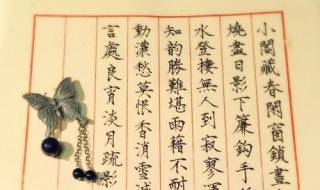 小閣藏春閒窗鎖晝
燒盡日影下簾鉤手
水登樓無人到寂寥渾
知韵勝難堪雨藉不耐
動濃愁莫恨香消雪減
言處良宵淡月疏影